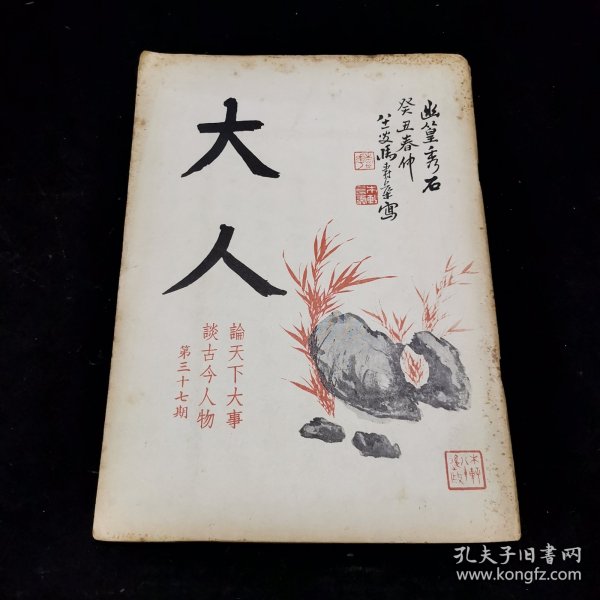 大人
論天下大事
談古今人物
第三十七期
幽篁秀石
癸丑春仲
孔夫子旧書网
www.kongfz.com